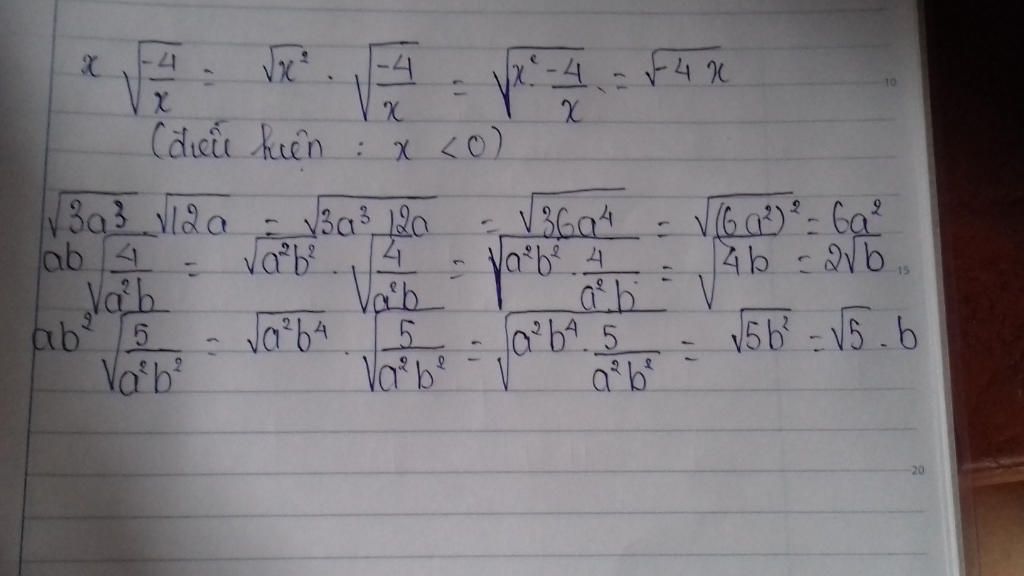 x √(-4/x) = √x² · √(-4/x) = √(x² · -4/x) = √-4x
10
(điều kiện : x < 0)
√3a³ · √12a = √3a³ · 12a = √36a⁴ = √(6a²)² = 6a²
ab √(4/a²b) = √a²b² · √(4/a²b) = √(a²b² · 4/a²b) = √4b = 2√b
15
ab² √(5/a²b²) = √a²b⁴ · √(5/a²b²) = √(a²b⁴ · 5/a²b²) = √5b² = √5 . b
20